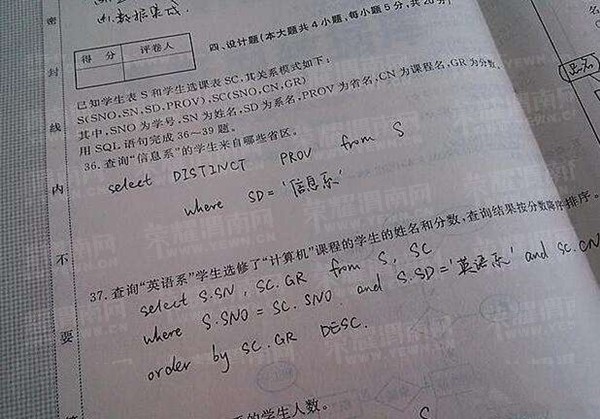 由数据集成.
密
封
线
内
不
要
得 分
评卷人
四、设计题(本大题共4小题,每小题5分,共20分)
已知学生表S和学生选课表SC,其关系模式如下:
S(SNO,SN,SD,PROV),SC(SNO,CN,GR)
其中,SNO为学号,SN为姓名,SD为系名,PROV为省名,CN为课程名,GR为分数,
用SQL语句完成36~39题。
36.查询“信息系”的学生来自哪些省区。
select DISTINCT PROV from S
where SD='信息系'
37.查询“英语系”学生选修了“计算机”课程的学生的姓名和分数,查询结果按分数降序排序。
select S.SN, SC.GR from S, SC
where S.SNO = SC.SNO and S.SD='英语系' and SC.CN
order by SC.GR DESC.
的学生人数。
S